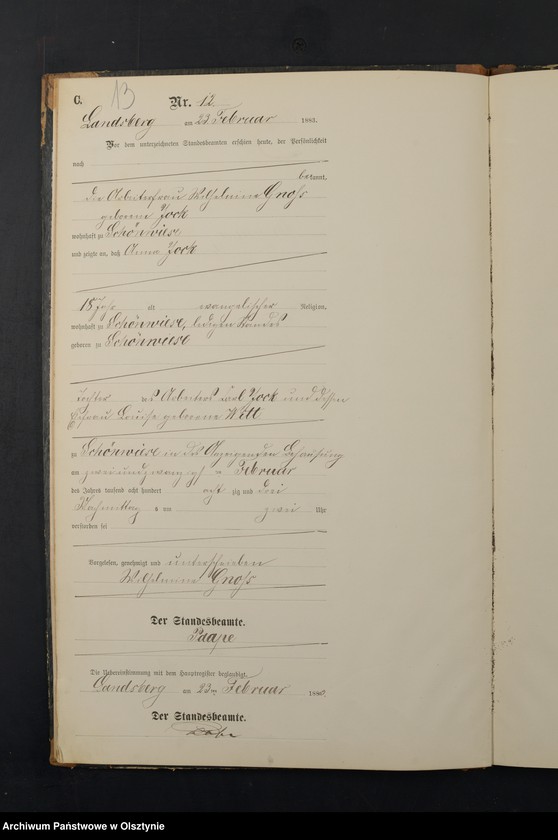 C.
13
Nr. 12
Landsberg am 23 Februar 1883.
Vor dem unterzeichneten Standesbeamten erschien heute, der Persönlichkeit
nach
bekannt,
die Arbeiterfrau Wilhelmine Gnoss
geborene Jock
wohnhaft zu Schönwiese
und zeigte an, daß Anna Jock
18 Jahr alt evangelischer Religion,
wohnhaft zu Schönwiese, ledigen Standes
geboren zu Schönwiese
Tochter des Arbeiters Jock und dessen
Ehefrau Louise geborene Witt
zu Schönwiese in der Behausung
am zweiundzwanzigsten Februar
des Jahres tausend acht hundert achtzig und drei
Nachmittags um zwei Uhr
verstorben sei
Vorgelesen, genehmigt und unterschrieben
Wilhelmine Gnoss
Der Standesbeamte.
Paape
Die Uebereinstimmung mit dem Hauptregister beglaubigt.
Landsberg am 23ten Februar 1883
Der Standesbeamte.
Archiwum Państwowe w Olsztynie